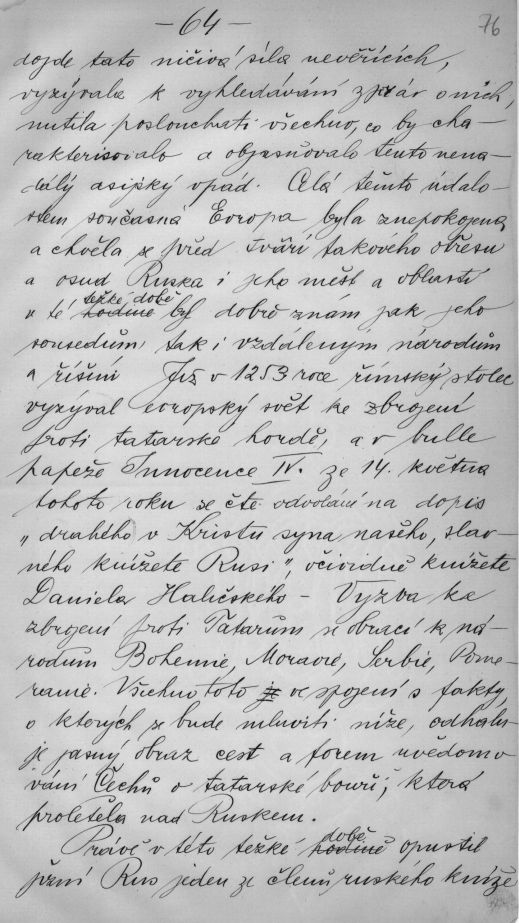 — 64 —
76
dojde tato ničivá síla nevěřících,
vyzývala k vyhledávání zpráv o nich,
nutila poslouchati všechno, co by cha-
rakterisovalo a objasňovalo tento nena-
dálý asijský vpád. Celá těmto údalo-
stem současná Evropa byla znepokojena
a chvěla se před tváří takového otřesu
a osud Ruska i jeho měst a oblastí
těžké době
v té hodině byl dobře znám jak jeho
sousedům tak i vzdáleným národům
a říším Již v 1253 roce římský stolec
vyzýval evropský svět ke zbrojení
proti tatarské hordě, a v bulle
papeže Innocence IV. ze 14. května
tohoto roku se čte odvolání na dopis
„drahého v Kristu syna našeho, slav-
ného knížete Rusi", očividně knížete
Daniela Haličského – Výzva ke
zbrojení proti Tatarům se obrací k ná-
rodům Bohemie, Moravie, Serbie, Pome-
ranie. Všechno toto je ve spojení s fakty,
o kterých se bude mluviti níže, odhalu-
je jasný obraz cest a forem uvědomo
vání Čechů o tatarské bouři, která
proletěla nad Ruskem.
době
Právě v této těžké hodině opustil
první Rus jeden ze členů ruského kníže